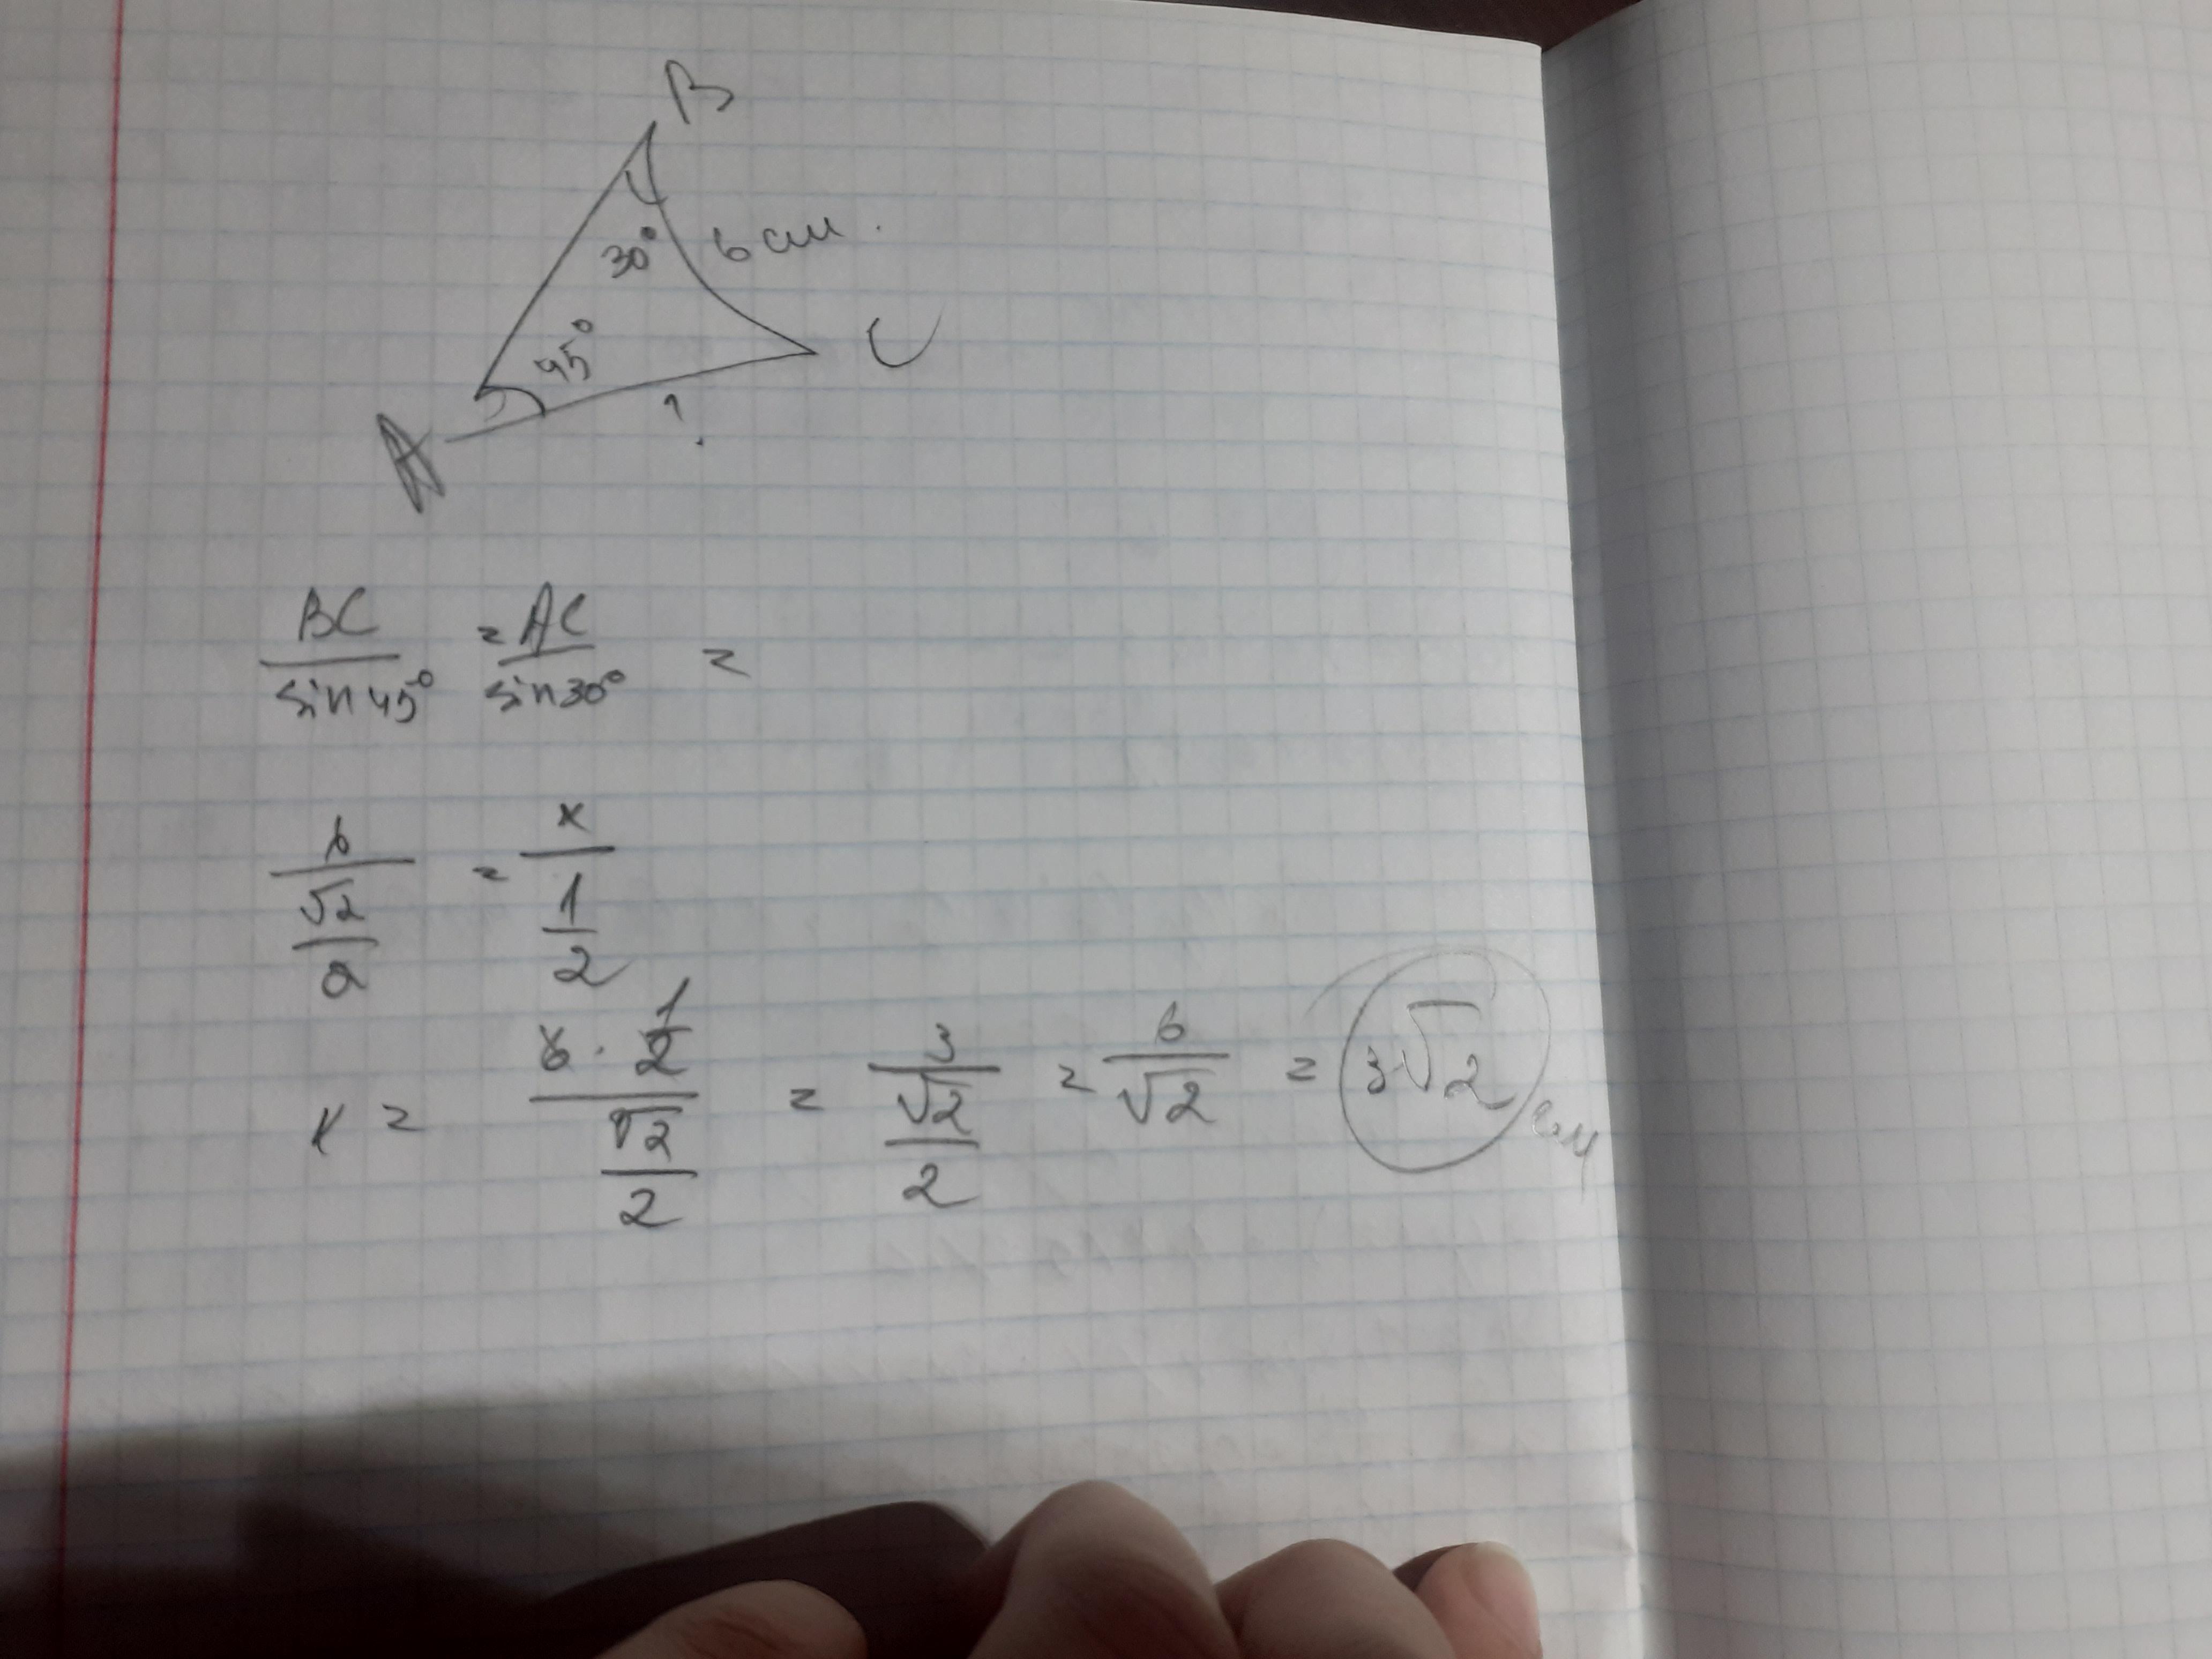 B
30° 6 см.
45° C
?
A
BC/sin45° = AC/sin30° =
6/(√2/2) = x/(1/2)
x = (6 · 1/2)/(√2/2) = 3/(√2/2) = 6/√2 = 3√2 см